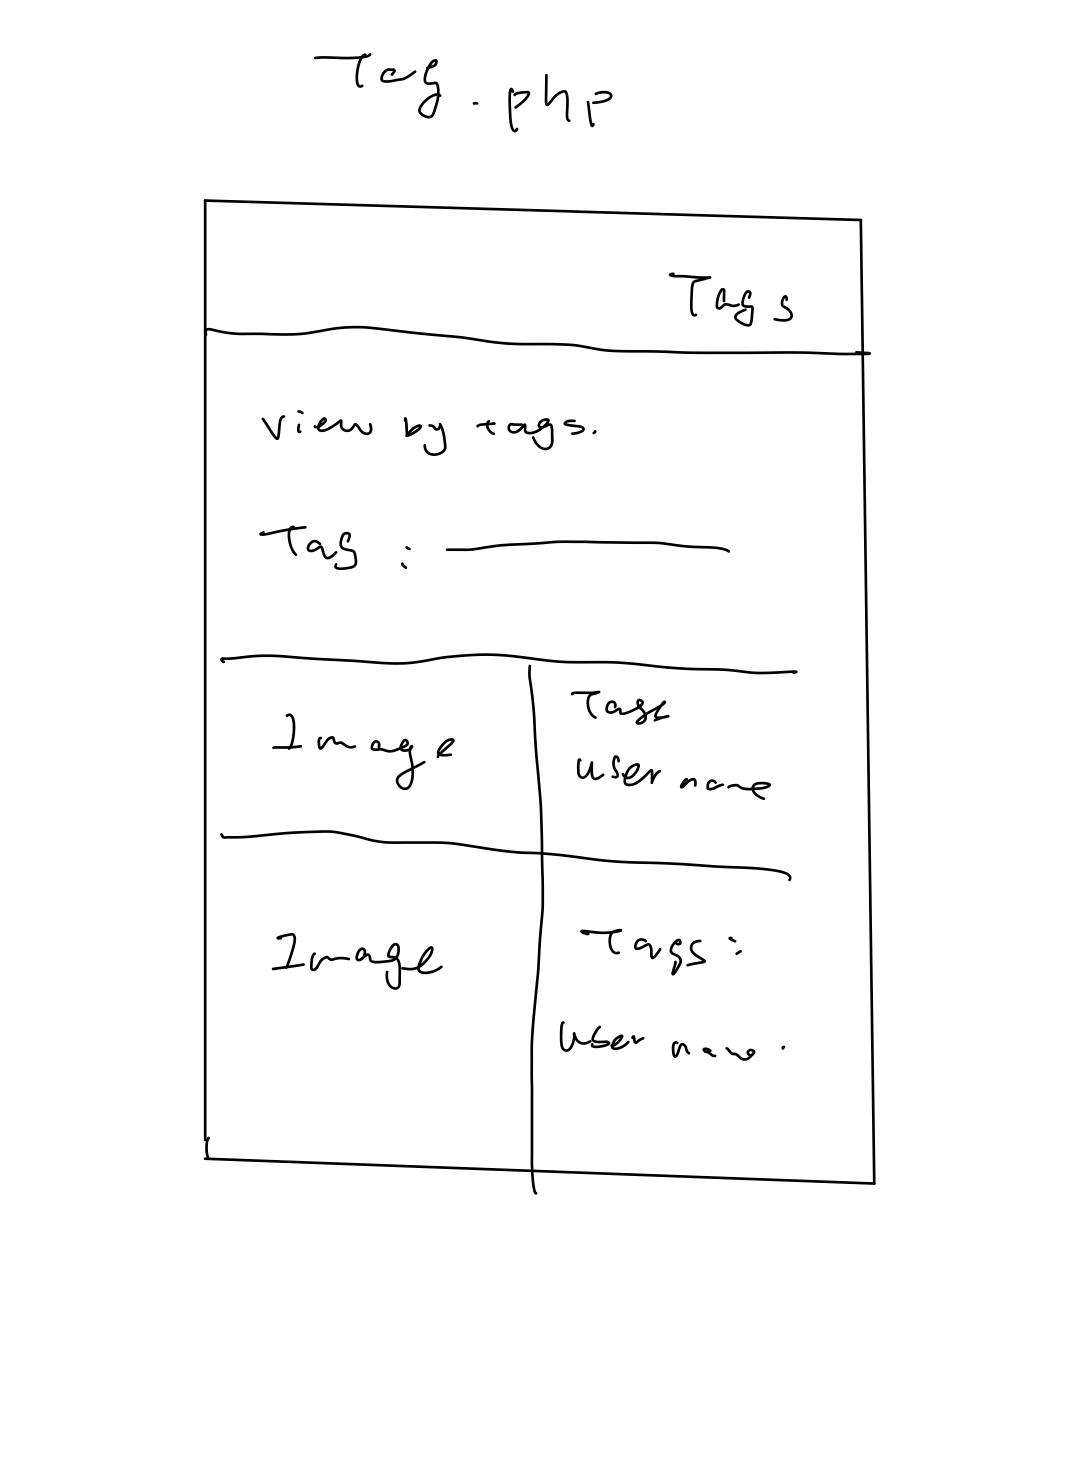 Tag.php
Tags
view by tags.
Tag :
Image
Tags
user name
Image
Tags :
User name .